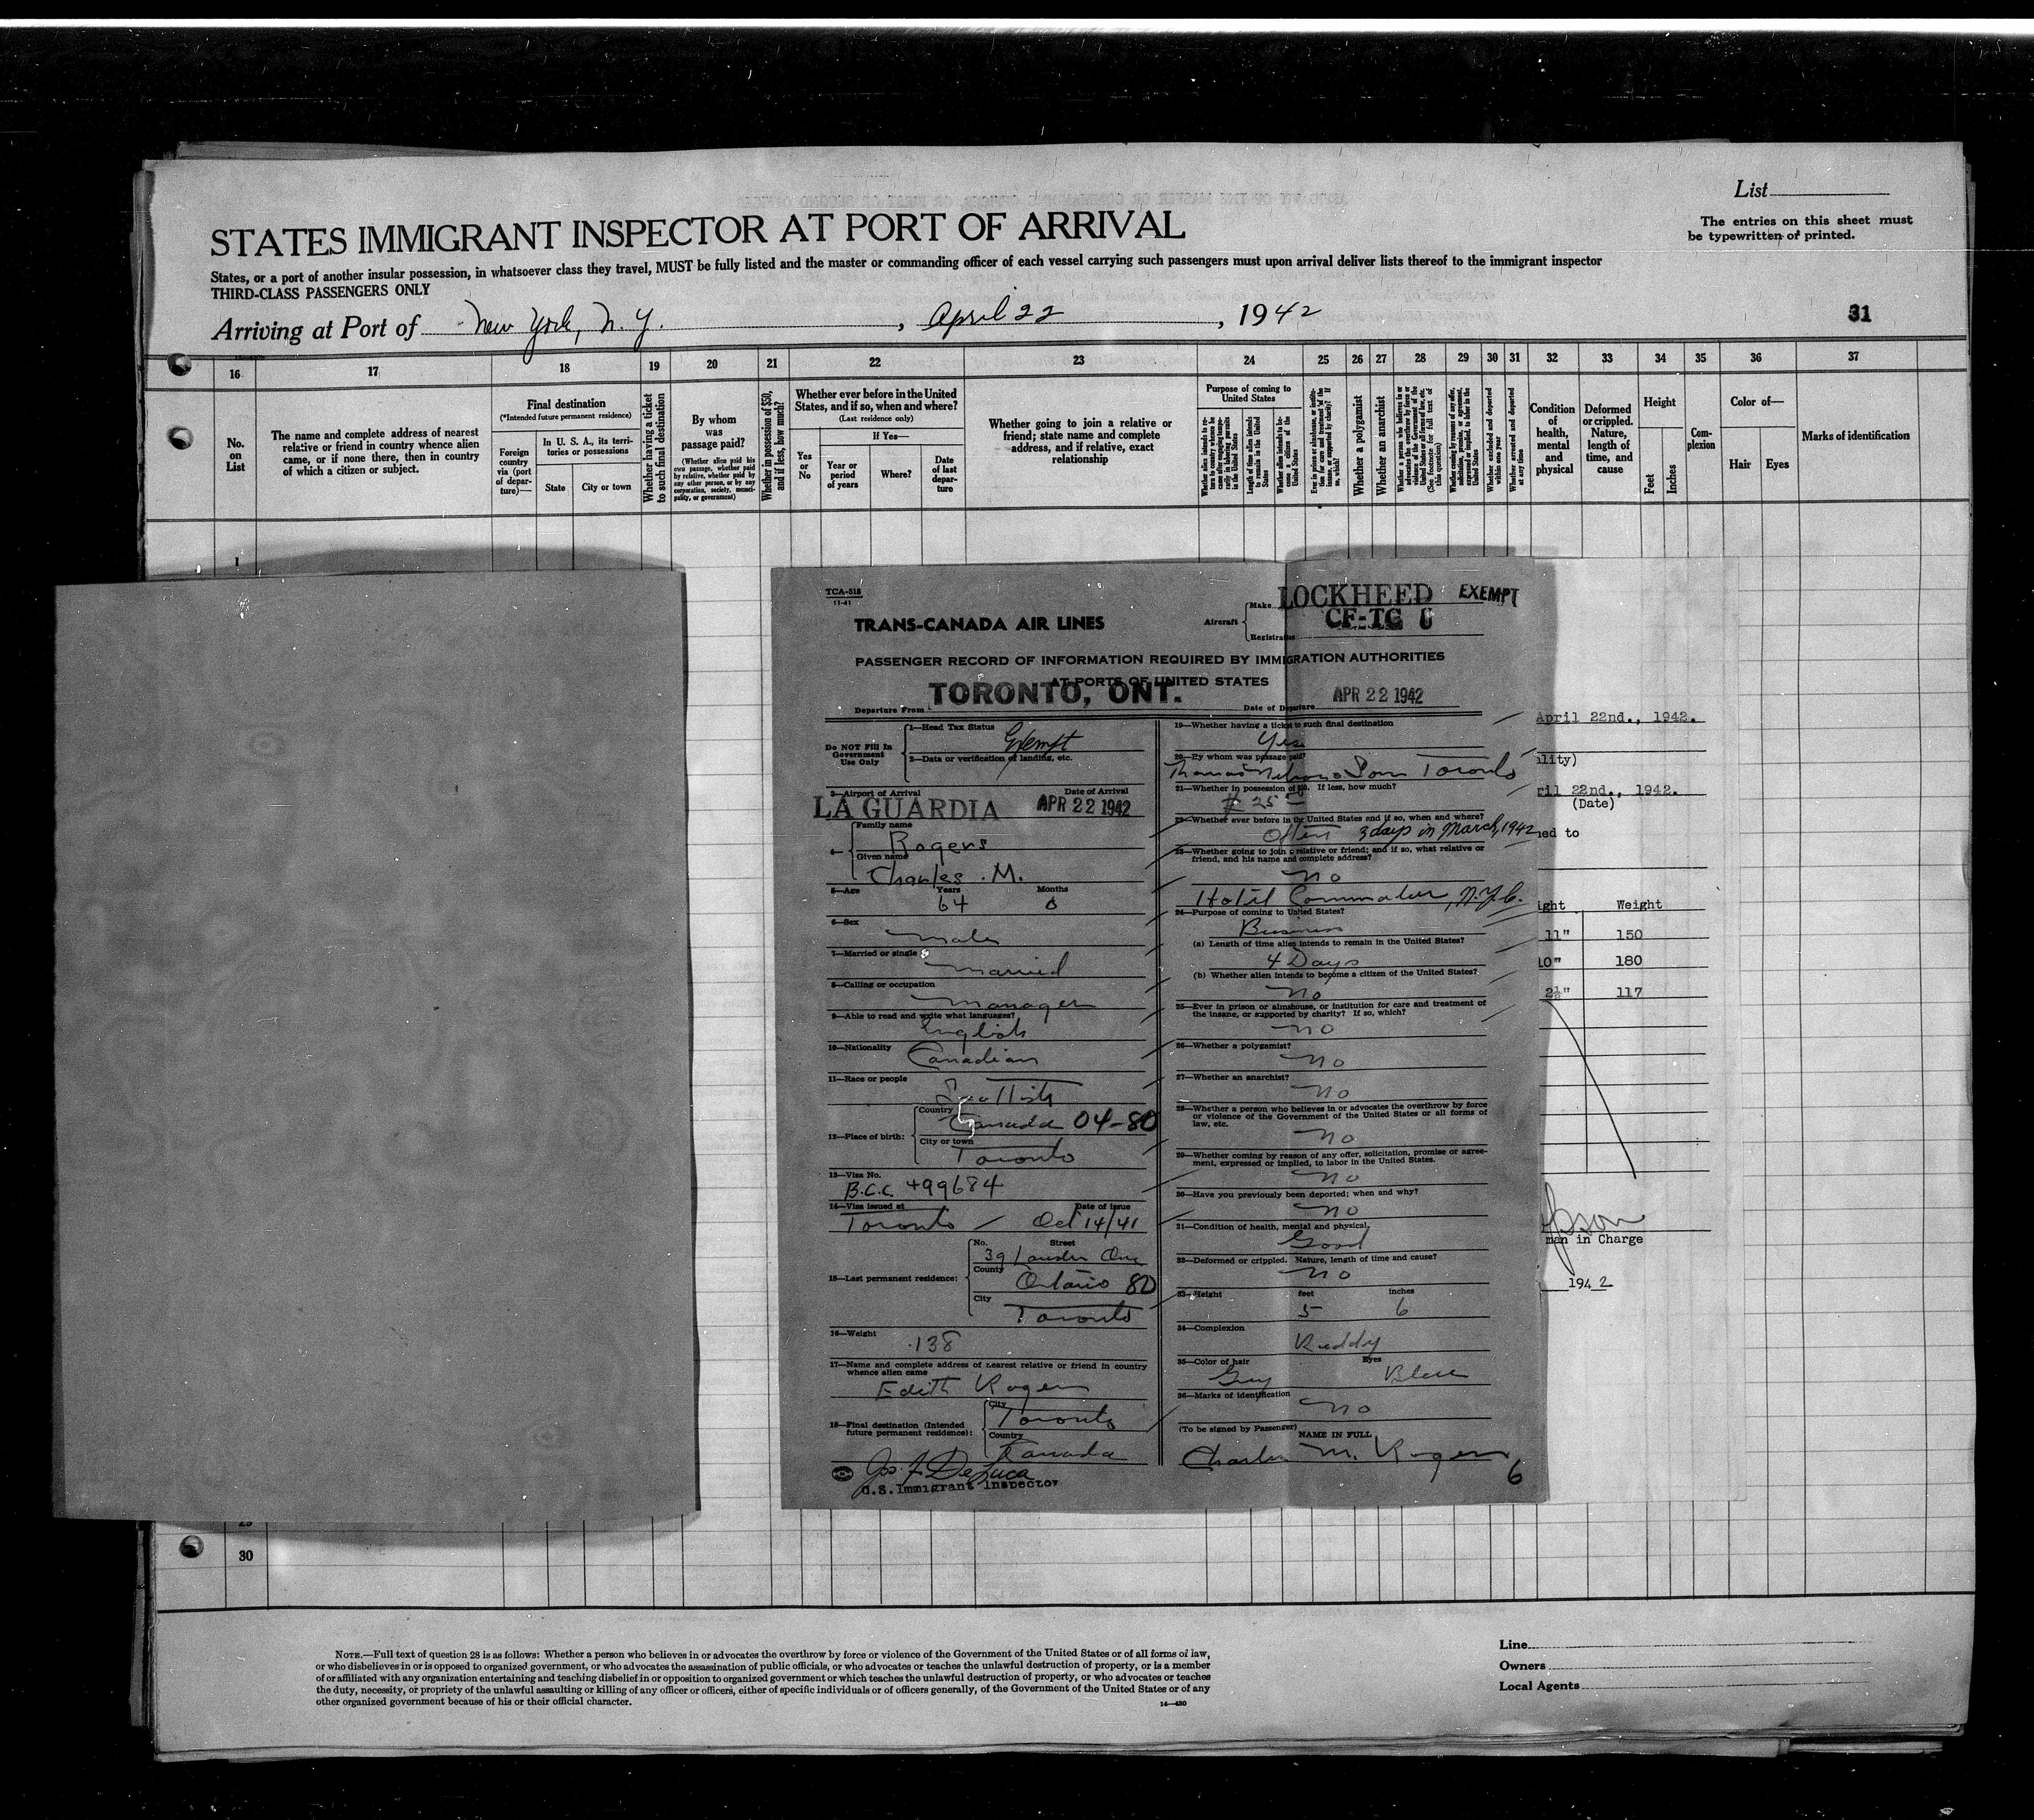 List
The entries on this sheet must
be typewritten or printed.
STATES IMMIGRANT INSPECTOR AT PORT OF ARRIVAL
States, or a port of another insular possession, in whatsoever class they travel, MUST be fully listed and the master or commanding officer of each vessel carrying such passengers must upon arrival deliver lists thereof to the immigrant inspector
THIRD-CLASS PASSENGERS ONLY
Arriving at Port of New York, N.Y., April 22, 1942
31
16 17 18 19 20 21 22 23 24 25 26 27 28 29 30 31 32 33 34 35 36 37
No.
on
List
The name and complete address of nearest
relative or friend in country whence alien
came, or if none there, then in country
of which a citizen or subject.
Final destination
(*Intended future permanent residence)
Foreign
country
via (port
of depar-
ture)—
In U. S. A., its terri-
tories or possessions
State
City or town
Whether having a ticket
to such final destination
By whom
was
passage paid?
(Whether alien paid his
own passage, whether paid
by relative, whether paid by
any other person, or by any
corporation, society, munici-
pality, or government)
Whether in possession of $50,
and if less, how much?
Whether ever before in the United
States, and if so, when and where?
(Last residence only)
If Yes—
Yes
or
No
Year or
period
of years
Where?
Date
of last
depar-
ture
Whether going to join a relative or
friend; state name and complete
address, and if relative, exact
relationship
Purpose of coming to
United States
Whether a polygamist
Whether an anarchist
Whether excluded and deported
within one year
Whether arrested and deported
at any time
Condition
of
health,
mental
and
physical
Deformed
or crippled.
Nature,
length of
time, and
cause
Height
Feet
Inches
Com-
plexion
Color of—
Hair
Eyes
Marks of identification
1
TCA-518
11-41
TRANS-CANADA AIR LINES
Aircraft
Make LOCKHEED
EXEMPT
Registration CF-TC
PASSENGER RECORD OF INFORMATION REQUIRED BY IMMIGRATION AUTHORITIES
AT PORTS OF UNITED STATES
Departure From TORONTO, ONT.
Date of Departure APR 22 1942
Do NOT Fill In
Government
Use Only
1—Head Tax Status
Exempt
2—Data or verification of landing, etc.
3—Airport of Arrival Date of Arrival
LA GUARDIA APR 22 1942
4—
Family name
Rogers
Given name
Charles M.
5—Age Years Months
64 0
6—Sex
Male
7—Married or single
Married
8—Calling or occupation
Manager
9—Able to read and write what languages?
English
10—Nationality
Canadian
11—Race or people
Scottish
12—Place of birth:
Country
Canada 04-80
City or town
Toronto
13—Visa No.
B.C.C. 499684
14—Visa issued at Date of issue
Toronto Oct 14/41
15—Last permanent residence:
No. Street
39 Lauder Ave
County
Ontario 80
City
Toronto
16—Weight
138
17—Name and complete address of nearest relative or friend in country
whence alien came
Edith Rogers
18—Final destination (Intended
future permanent residence):
City
Toronto
Country
Canada
Jos. F. DeLuca
U.S. Immigrant Inspector
19—Whether having a ticket to such final destination
Yes
20—By whom was passage paid?
Thomas Nelson & Sons Toronto
21—Whether in possession of $50. If less, how much?
$ 25
22—Whether ever before in the United States and if so, when and where?
Often 3 days in March, 1942
23—Whether going to join a relative or friend; and if so, what relative or
friend, and his name and complete address?
No
Hotel Commodore, N.Y.C.
24—Purpose of coming to United States?
Business
(a) Length of time alien intends to remain in the United States?
4 Days
(b) Whether alien intends to become a citizen of the United States?
No
25—Ever in prison or almshouse, or institution for care and treatment of
the insane, or supported by charity? If so, which?
No
26—Whether a polygamist?
No
27—Whether an anarchist?
No
28—Whether a person who believes in or advocates the overthrow by force
or violence of the Government of the United States or all forms of
law, etc.
No
29—Whether coming by reason of any offer, solicitation, promise or agree-
ment, expressed or implied, to labor in the United States.
No
30—Have you previously been deported; when and why?
No
31—Condition of health, mental and physical.
Good
32—Deformed or crippled. Nature, length of time and cause?
No
33—Height feet inches
5 6
34—Complexion
Ruddy
35—Color of hair Eyes
Grey Blue
36—Marks of identification
No
(To be signed by Passenger)
NAME IN FULL
Charles M. Rogers
6
April 22nd., 1942.
ality)
ril 22nd., 1942.
(Date)
ned to
ight Weight
11" 150
10" 180
2½" 117
man in Charge
1942
30
NOTE.—Full text of question 28 is as follows: Whether a person who believes in or advocates the overthrow by force or violence of the Government of the United States or of all forms of law,
or who disbelieves in or is opposed to organized government, or who advocates the assassination of public officials, or who advocates or teaches the unlawful destruction of property, or is a member
of or affiliated with any organization entertaining and teaching disbelief in or opposition to organized government or which teaches the unlawful destruction of property, or who advocates or teaches
the duty, necessity, or propriety of the unlawful assaulting or killing of any officer or officers, either of specific individuals or of officers generally, of the Government of the United States or of any
other organized government because of his or their official character.
14—430
Line
Owners
Local Agents